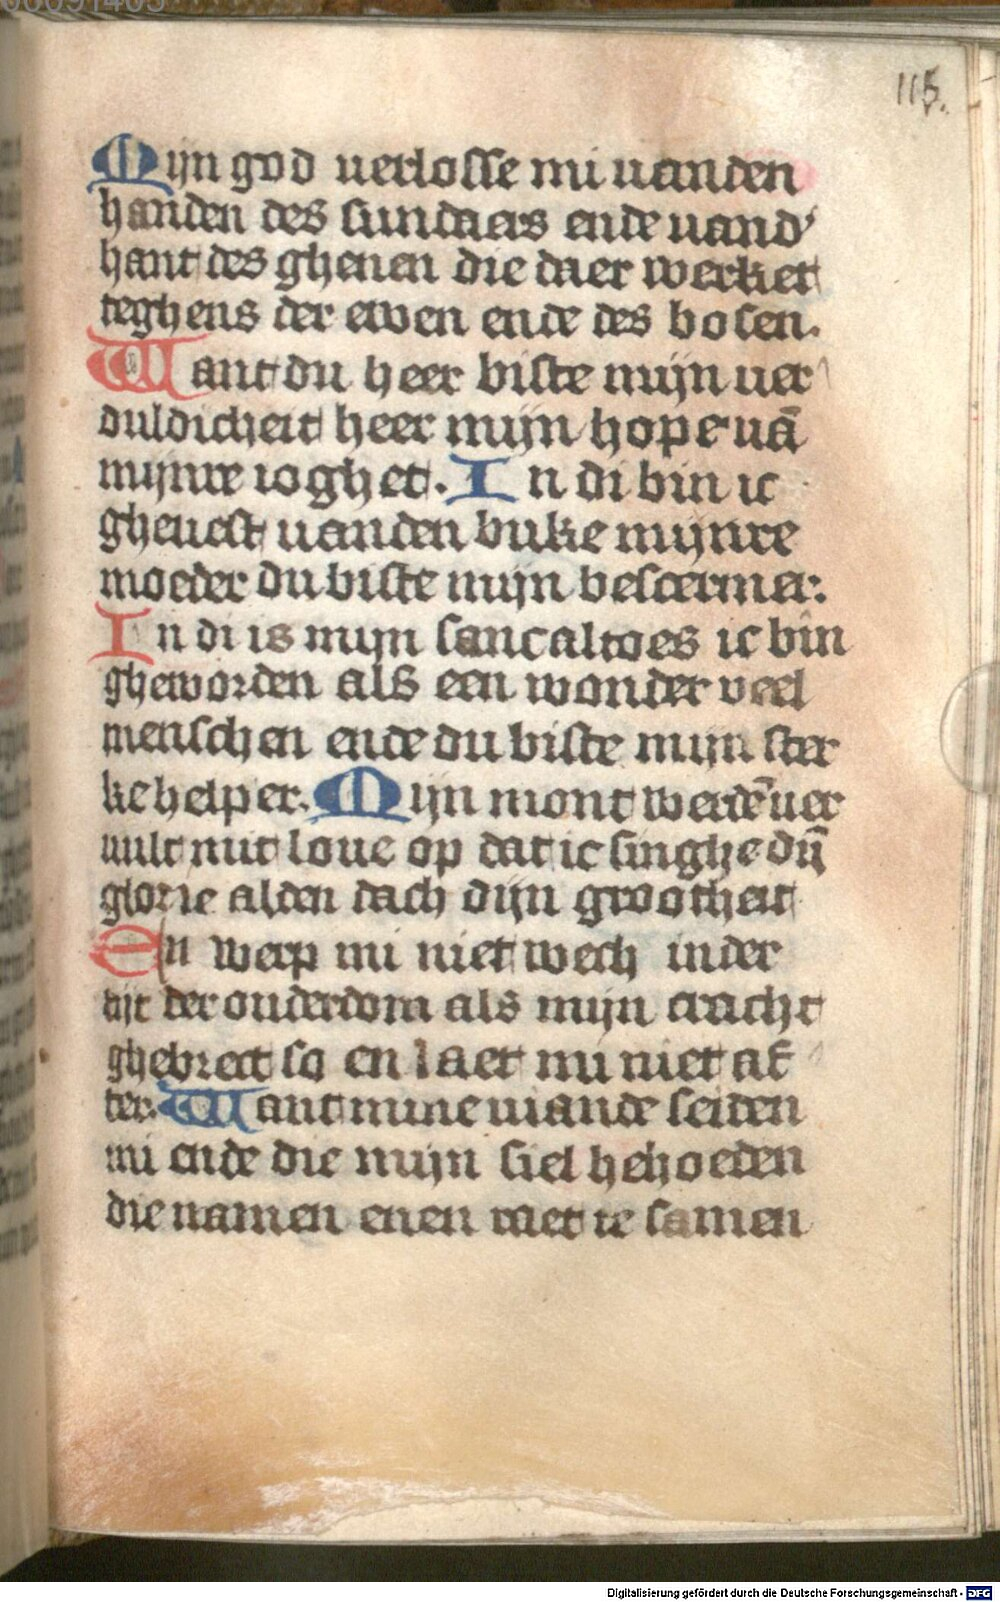 115.
Mijn god verlosse mi vanden
handen des sundaers ende vand'
hant des ghenen die daer werket
teghens der ewen ende des bosen.
Want du heer biste mijn ver
duldicheit heer mijn hope vā
mijnre ioghet. In di bin ic
ghevest vanden buke mijnre
moeder du biste mijn bescermer:
In di is mijn sanc altoes ic bin
gheworden als een wonder veel
menschen ende du biste mijn ster
ke helper. Mijn mont werdē ver
vult mit love op dat ic singhe dij̄
glorie alden dach dijn grootheit
En werp mi niet wech in der
tijt der ouderdom als mijn cracht
ghebrect so en laet mi niet af
ter. Want mine viande seiden
mi ende die mijn siel behoeden
die namen enen raet te samen
Digitalisierung gefördert durch die Deutsche Forschungsgemeinschaft - DFG